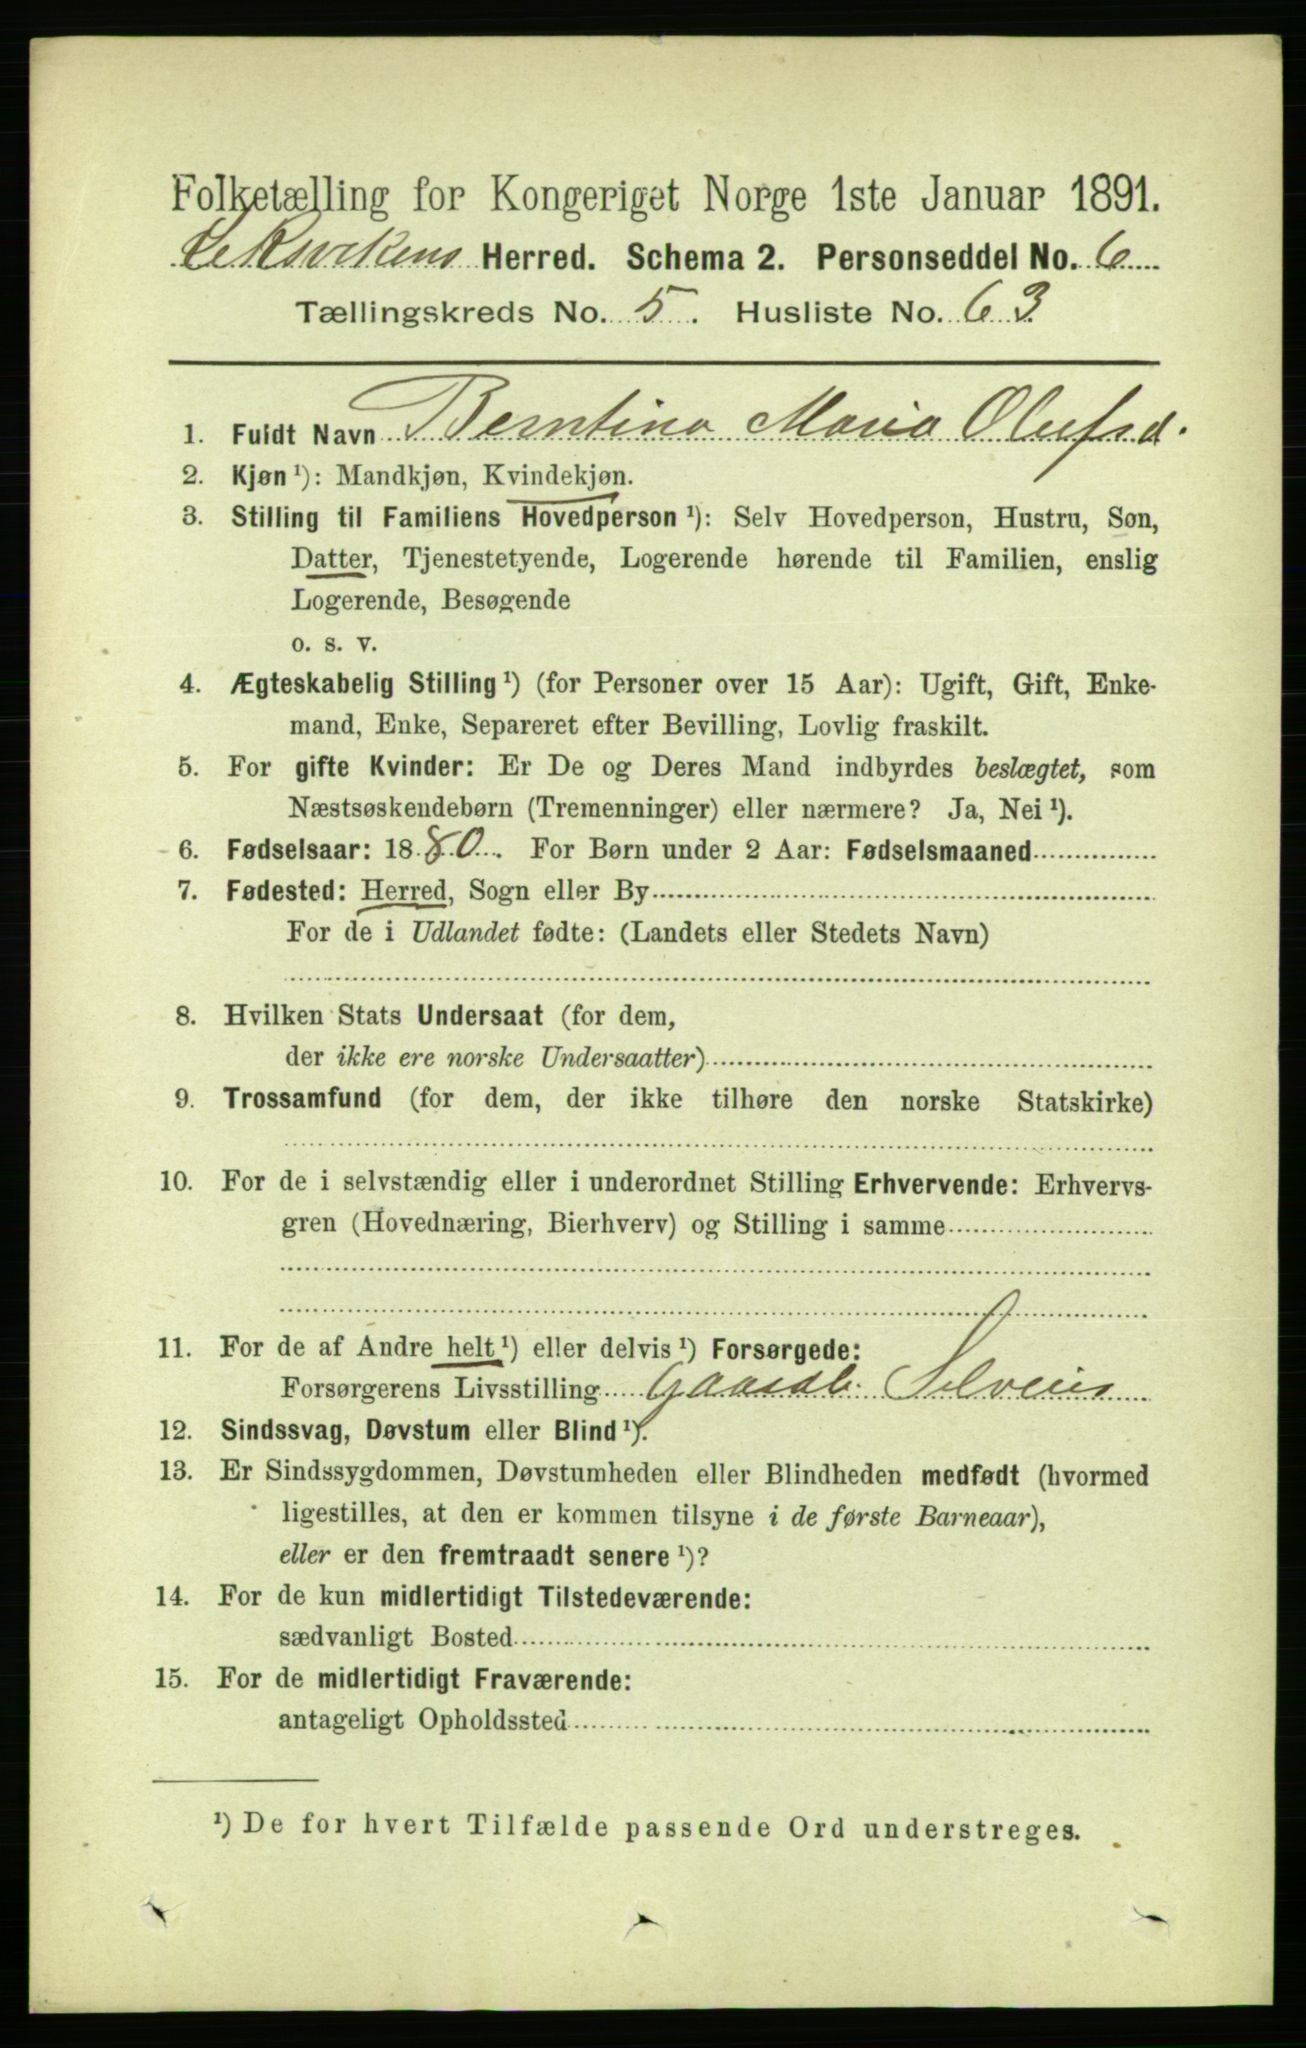 Folketælling for Kongeriget Norge 1ste Januar 1891.
Leksvikens Herred. Schema 2. Personseddel No. 6
Tællingskreds No. 5. Husliste No. 63
1. Fuldt Navn Berntina Maria Olufsd.
2. Kjøn ¹): Mandkjøn, Kvindekjøn.
3. Stilling til Familiens Hovedperson ¹): Selv Hovedperson, Hustru, Søn,
Datter, Tjenestetyende, Logerende hørende til Familien, enslig
Logerende, Besøgende
o. s. v.
4. Ægteskabelig Stilling ¹) (for Personer over 15 Aar): Ugift, Gift, Enke-
mand, Enke, Separeret efter Bevilling, Lovlig fraskilt.
5. For gifte Kvinder: Er De og Deres Mand indbyrdes beslægtet, som
Næstsøskendebørn (Tremenninger) eller nærmere? Ja, Nei ¹).
6. Fødselsaar: 1880. For Børn under 2 Aar: Fødselsmaaned
7. Fødested: Herred, Sogn eller By
For de i Udlandet fødte: (Landets eller Stedets Navn)
8. Hvilken Stats Undersaat (for dem,
der ikke ere norske Undersaatter)
9. Trossamfund (for dem, der ikke tilhøre den norske Statskirke)
10. For de i selvstændig eller i underordnet Stilling Erhvervende: Erhvervs-
gren (Hovednæring, Bierhverv) og Stilling i samme
11. For de af Andre helt ¹) eller delvis ¹) Forsørgede:
Forsørgerens Livsstilling Gaardb. Selveier
12. Sindssvag, Døvstum eller Blind ¹).
13. Er Sindssygdommen, Døvstumheden eller Blindheden medfødt (hvormed
ligestilles, at den er kommen tilsyne i de første Barneaar),
eller er den fremtraadt senere ¹)?
14. For de kun midlertidigt Tilstedeværende:
sædvanligt Bosted
15. For de midlertidigt Fraværende:
antageligt Opholdssted
¹) De for hvert Tilfælde passende Ord understreges.